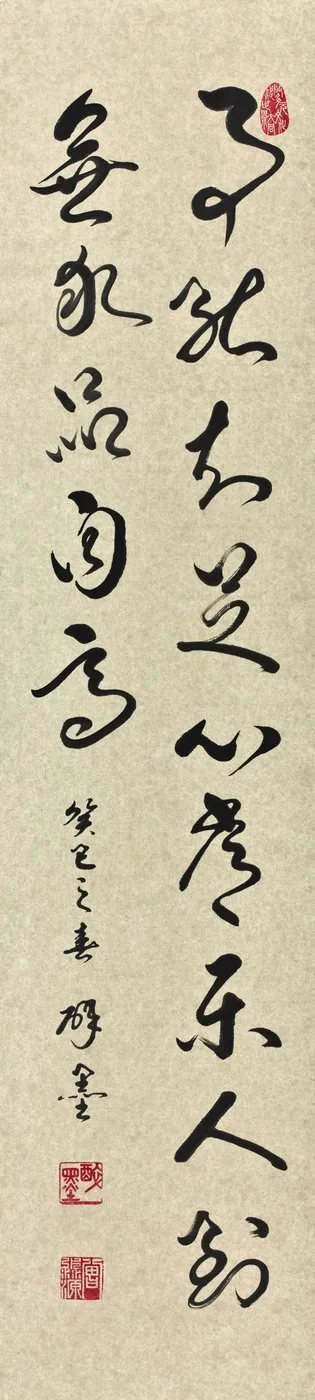 事能知足心常樂人到
無求品自高
癸巳之春 醉墨
醉墨